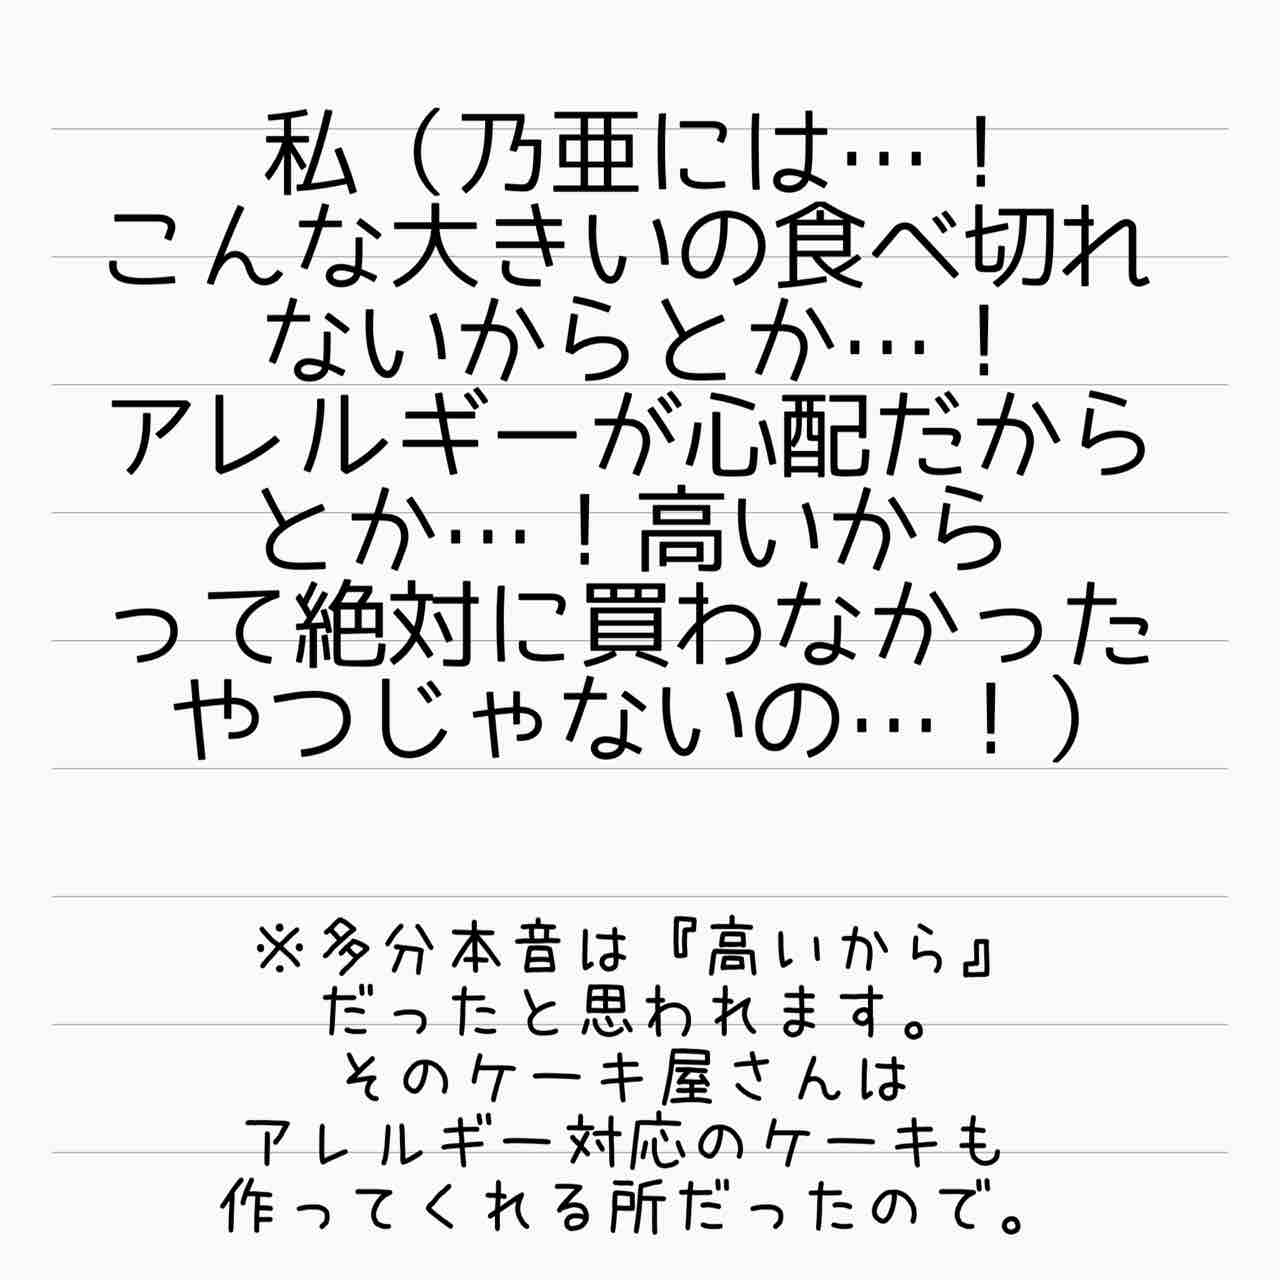 私（乃亜には…！
こんな大きいの食べ切れ
ないからとか…！
アレルギーが心配だから
とか…！高いから
って絶対に買わなかった
やつじゃないの…！）
※多分本音は『高いから』
だったと思われます。
そのケーキ屋さんは
アレルギー対応のケーキも
作ってくれる所だったので。